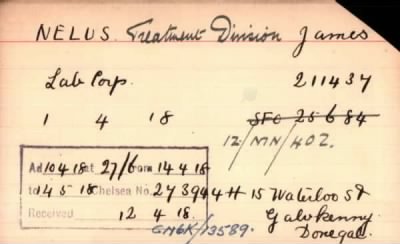 NELUS. Treatment Division James
Lab Corps. 211437
1 4 18 SFC 25 6 84
12/MN/402.
Ad 10 4 18 at 27/6 from 14 4 18
to 14 5 18 Chelsea No. 273944H 15 Waterloo St
Received 12 4 18. Galvkenny
GN6K/13589. Donegal.